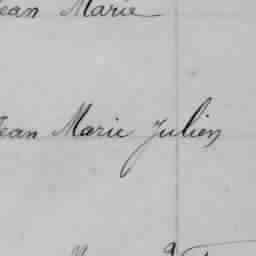 ean Marie
ean Marie Julien